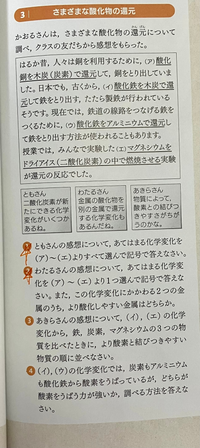 3 さまざまな酸化物の還元
かおるさんは、さまざまな酸化物の還元について
調べ、クラスの友だちから感想をもらった。
はるか昔、人々は銅を利用するために、(ア)酸化
銅を木炭(炭素)で還元し、銅をとり出していま
した。日本でも、古くから、(イ)酸化鉄を木炭で還
元して鉄をとり出す、たたら製鉄が行われている
そうです。現在では、鉄道の線路をつなげる鉄を
つくるために、(ウ)酸化鉄をアルミニウムで還元し
て鉄をとり出す方法が使われることもあります。
授業では、みんなで実験した(エ)マグネシウムを
ドライアイス(二酸化炭素)の中で燃焼させる実験
が還元の反応でした。
ともさん
二酸化炭素が新
たにできる化学
変化がいくつか
あるね。
わたるさん
金属の酸化物を
別の金属で還元
する化学変化も
あるんだね。
あきらさん
物質によって、
酸素との結びつ
きやすさがちが
うのかな。
1 ともさんの感想について、あてはまる化学変化を
(ア)〜(エ)からすべて選んで記号で答えなさい。
2 わたるさんの感想について、あてはまる化学変
化を(ア)〜(エ)より1つ選んで記号で答えなさ
い。また、この化学変化にかかわる2つの金
属のうち、より酸化しやすい金属はどちらか。
3 あきらさんの感想について、(イ)、(エ)の化学
変化から、鉄、炭素、マグネシウムの3つの物
質を比べたときに、より酸素と結びつきやすい
物質の順に並べなさい。
4 (イ)、(ウ)の化学変化では、炭素もアルミニウム
も酸化鉄から酸素をうばっているが、どちらが
酸素をうばう力が強いか、調べる方法を答えな
さい。